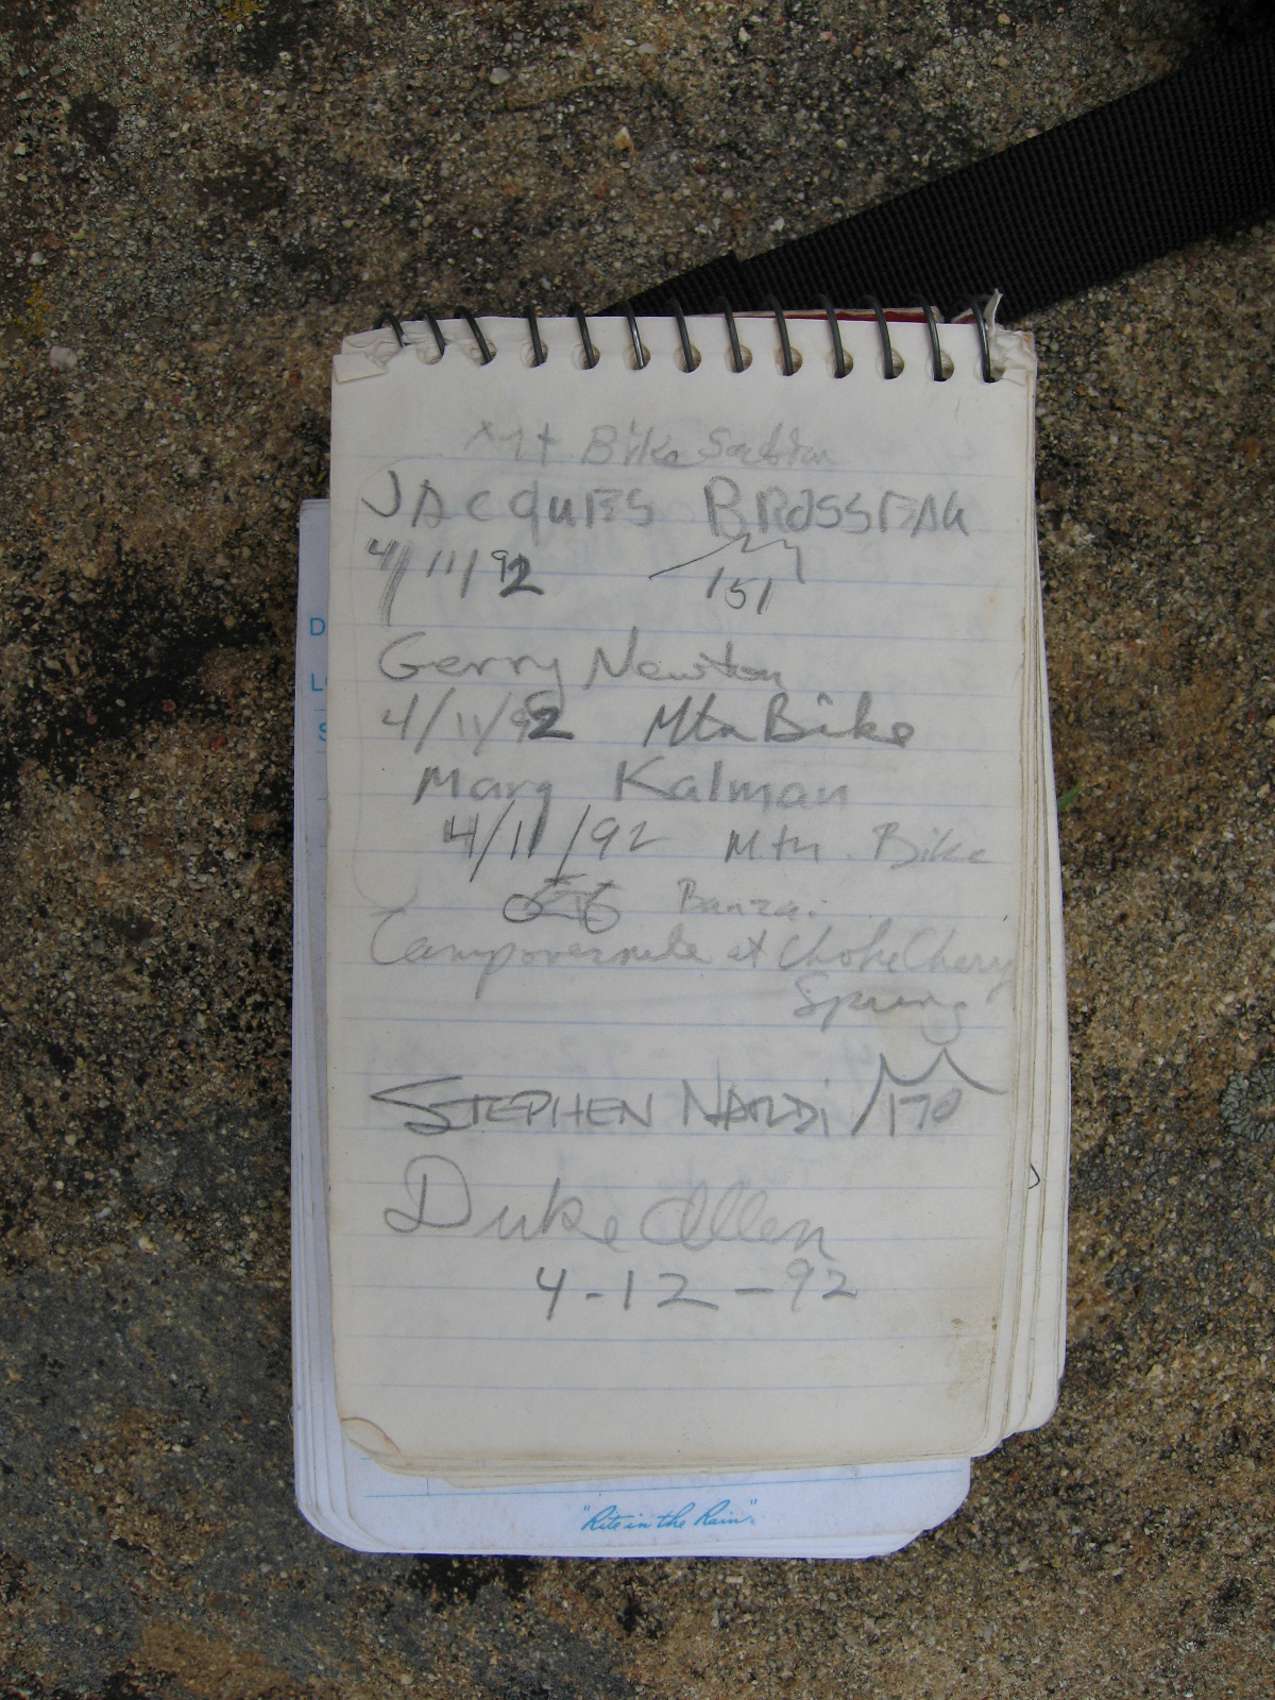 Bike Section
JACQUES BROSSEAU
4/11/92 151
Gerry Newton
4/11/92 Mtn Bike
Marg Kalman
4/11/92 Mtn. Bike
Banzai
Camp overnite at Choke Cherry
Spring
STEPHEN NARDi /170
Duke Allen
4-12-92
D
L
S
"Rite in the Rain"